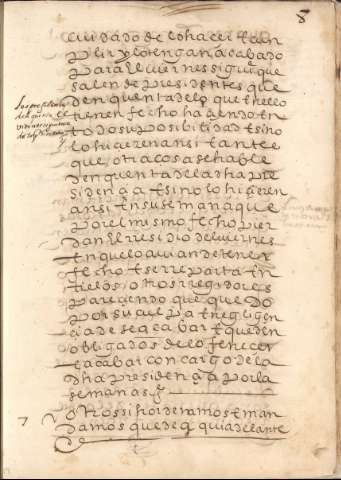 8
cuidado de lo hacer t cun
plir y lo tengan acabado
para el viernes siguiente
salen de presidentes que
den quenta de lo que en ello
tienen fecho haziendo en
todo su posibilidad t si no
lo hizieren ansi t ante
que otra cosa se hable
den quenta de la dha pre
sidenzia t si no lo hizieren
ansi t en su semana que
por el mismo fecho pier
dan el residio del viernes
en que lo avian de tener
fecho t se reparta en
tre los otros regidores
pareziendo que quedo
por su culpa t negligen
cia de se acabar t queden
obligados de lo fenecer
t acabar con cargo de la
dha presidenzia por la
semana
7
otrossi hordenamos t man
damos que de aqui adelante